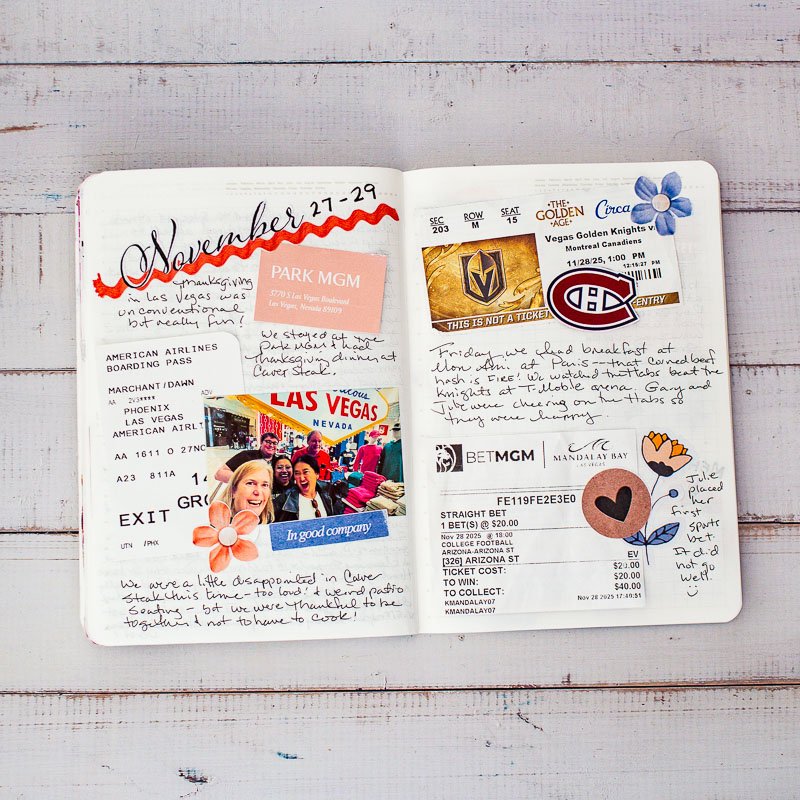 November 27-29
Thanksgiving
in Las Vegas was
unconventional
but really fun!
PARK MGM
3770 S Las Vegas Boulevard
Las Vegas, Nevada 89109
We stayed at the
Park MGM & had
Thanksgiving dinner at
Caver Steak.
AMERICAN AIRLINES
BOARDING PASS
MARCHANT/DAWN
AA 2V3****
PHOENIX
LAS VEGAS
AMERICAN AIRLI
AA 1611 O 27NO
A23 811A
GRO
EXIT
UTN /PHX
ADV
LAS VEGAS
NEVADA
In good company
We were a little disappointed in Caver
Steak this time - too loud! & weird patio
seating - but we were thankful to be
together & not to have to cook!
SEC ROW SEAT
203 M 15
THE
GOLDEN
AGE
Circa
Vegas Golden Knights v
Montreal Canadiens
11/28/25, 1:00 PM
12:16:27
PM
THIS IS NOT A TICKET
-ENTRY
Friday we had breakfast at
Mon Ami at Paris - that corned beef
hash is FIRE! We watched the Habs beat the
Knights at T-Mobile arena. Gary and
Julie were cheering on the Habs so
they were happy.
BETMGM
MANDALAY BAY
LAS VEGAS
FE119FE2E3E0
STRAIGHT BET
1 BET(S) @ $20.00
Nov 28 2025 @ 18:00
COLLEGE FOOTBALL
ARIZONA-ARIZONA ST
[326] ARIZONA ST EV
TICKET COST: $20.00
TO WIN: $20.00
TO COLLECT: $40.00
KMANDALAY07
KMANDALAY07 Nov 28 2025 17:40:51
Julie
placed
her
first
sports
bet.
It did
not go
well.